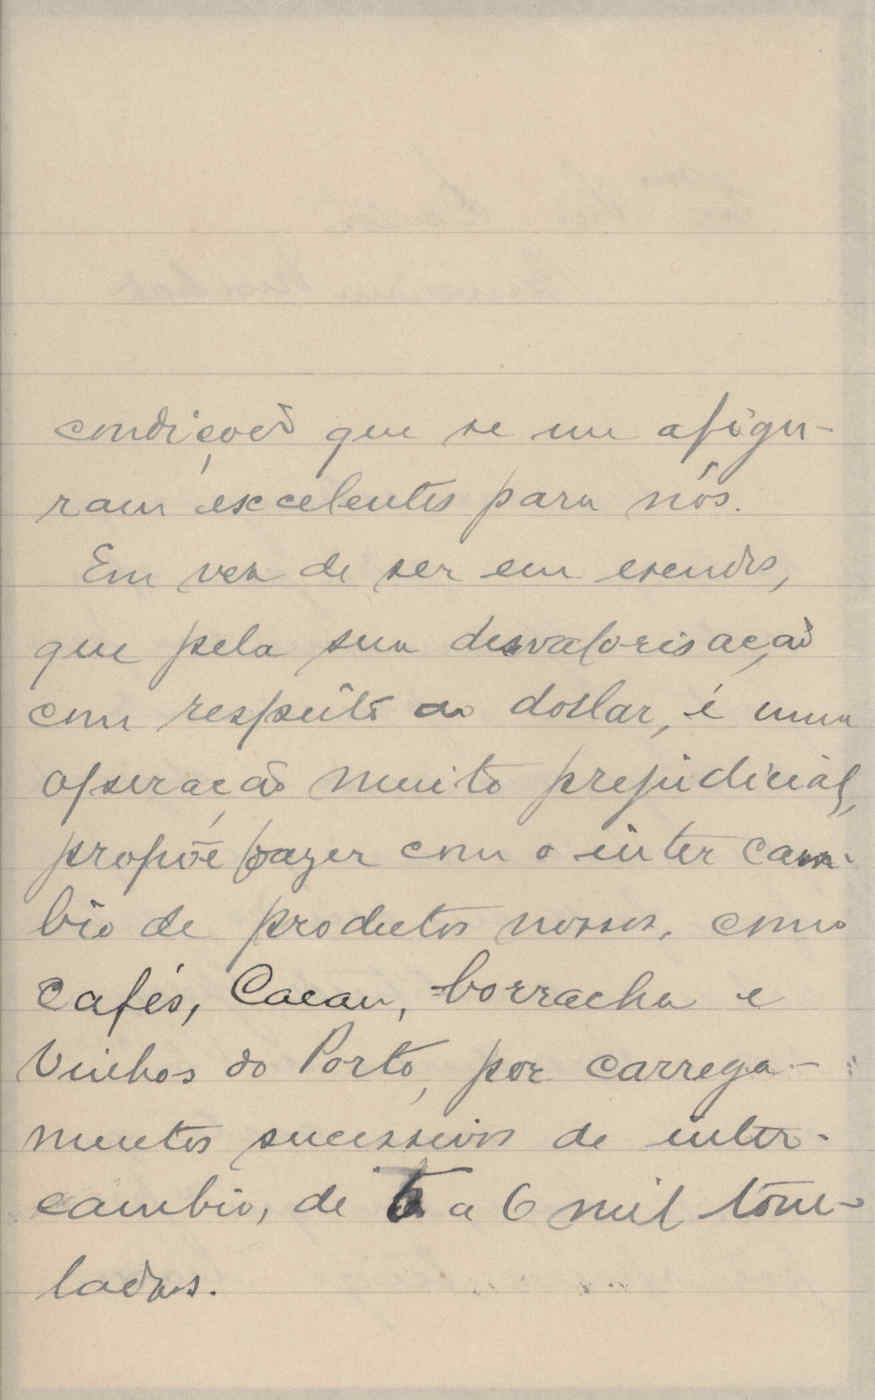 condições que se me afigu-
ram excelentes para nós.
Em vez de ser em escudos,
que pela sua desvalorisação
com respeito ao dollar, é uma
operação muito prejudicial,
propõe fazer com o inter cam-
bio de productos nossos, como
cafés, Cacau, borracha e
Vinhos do Porto, por carrega-
mentos sucessivos de inter-
cambio, de 5 a 6 mil tone-
ladas.